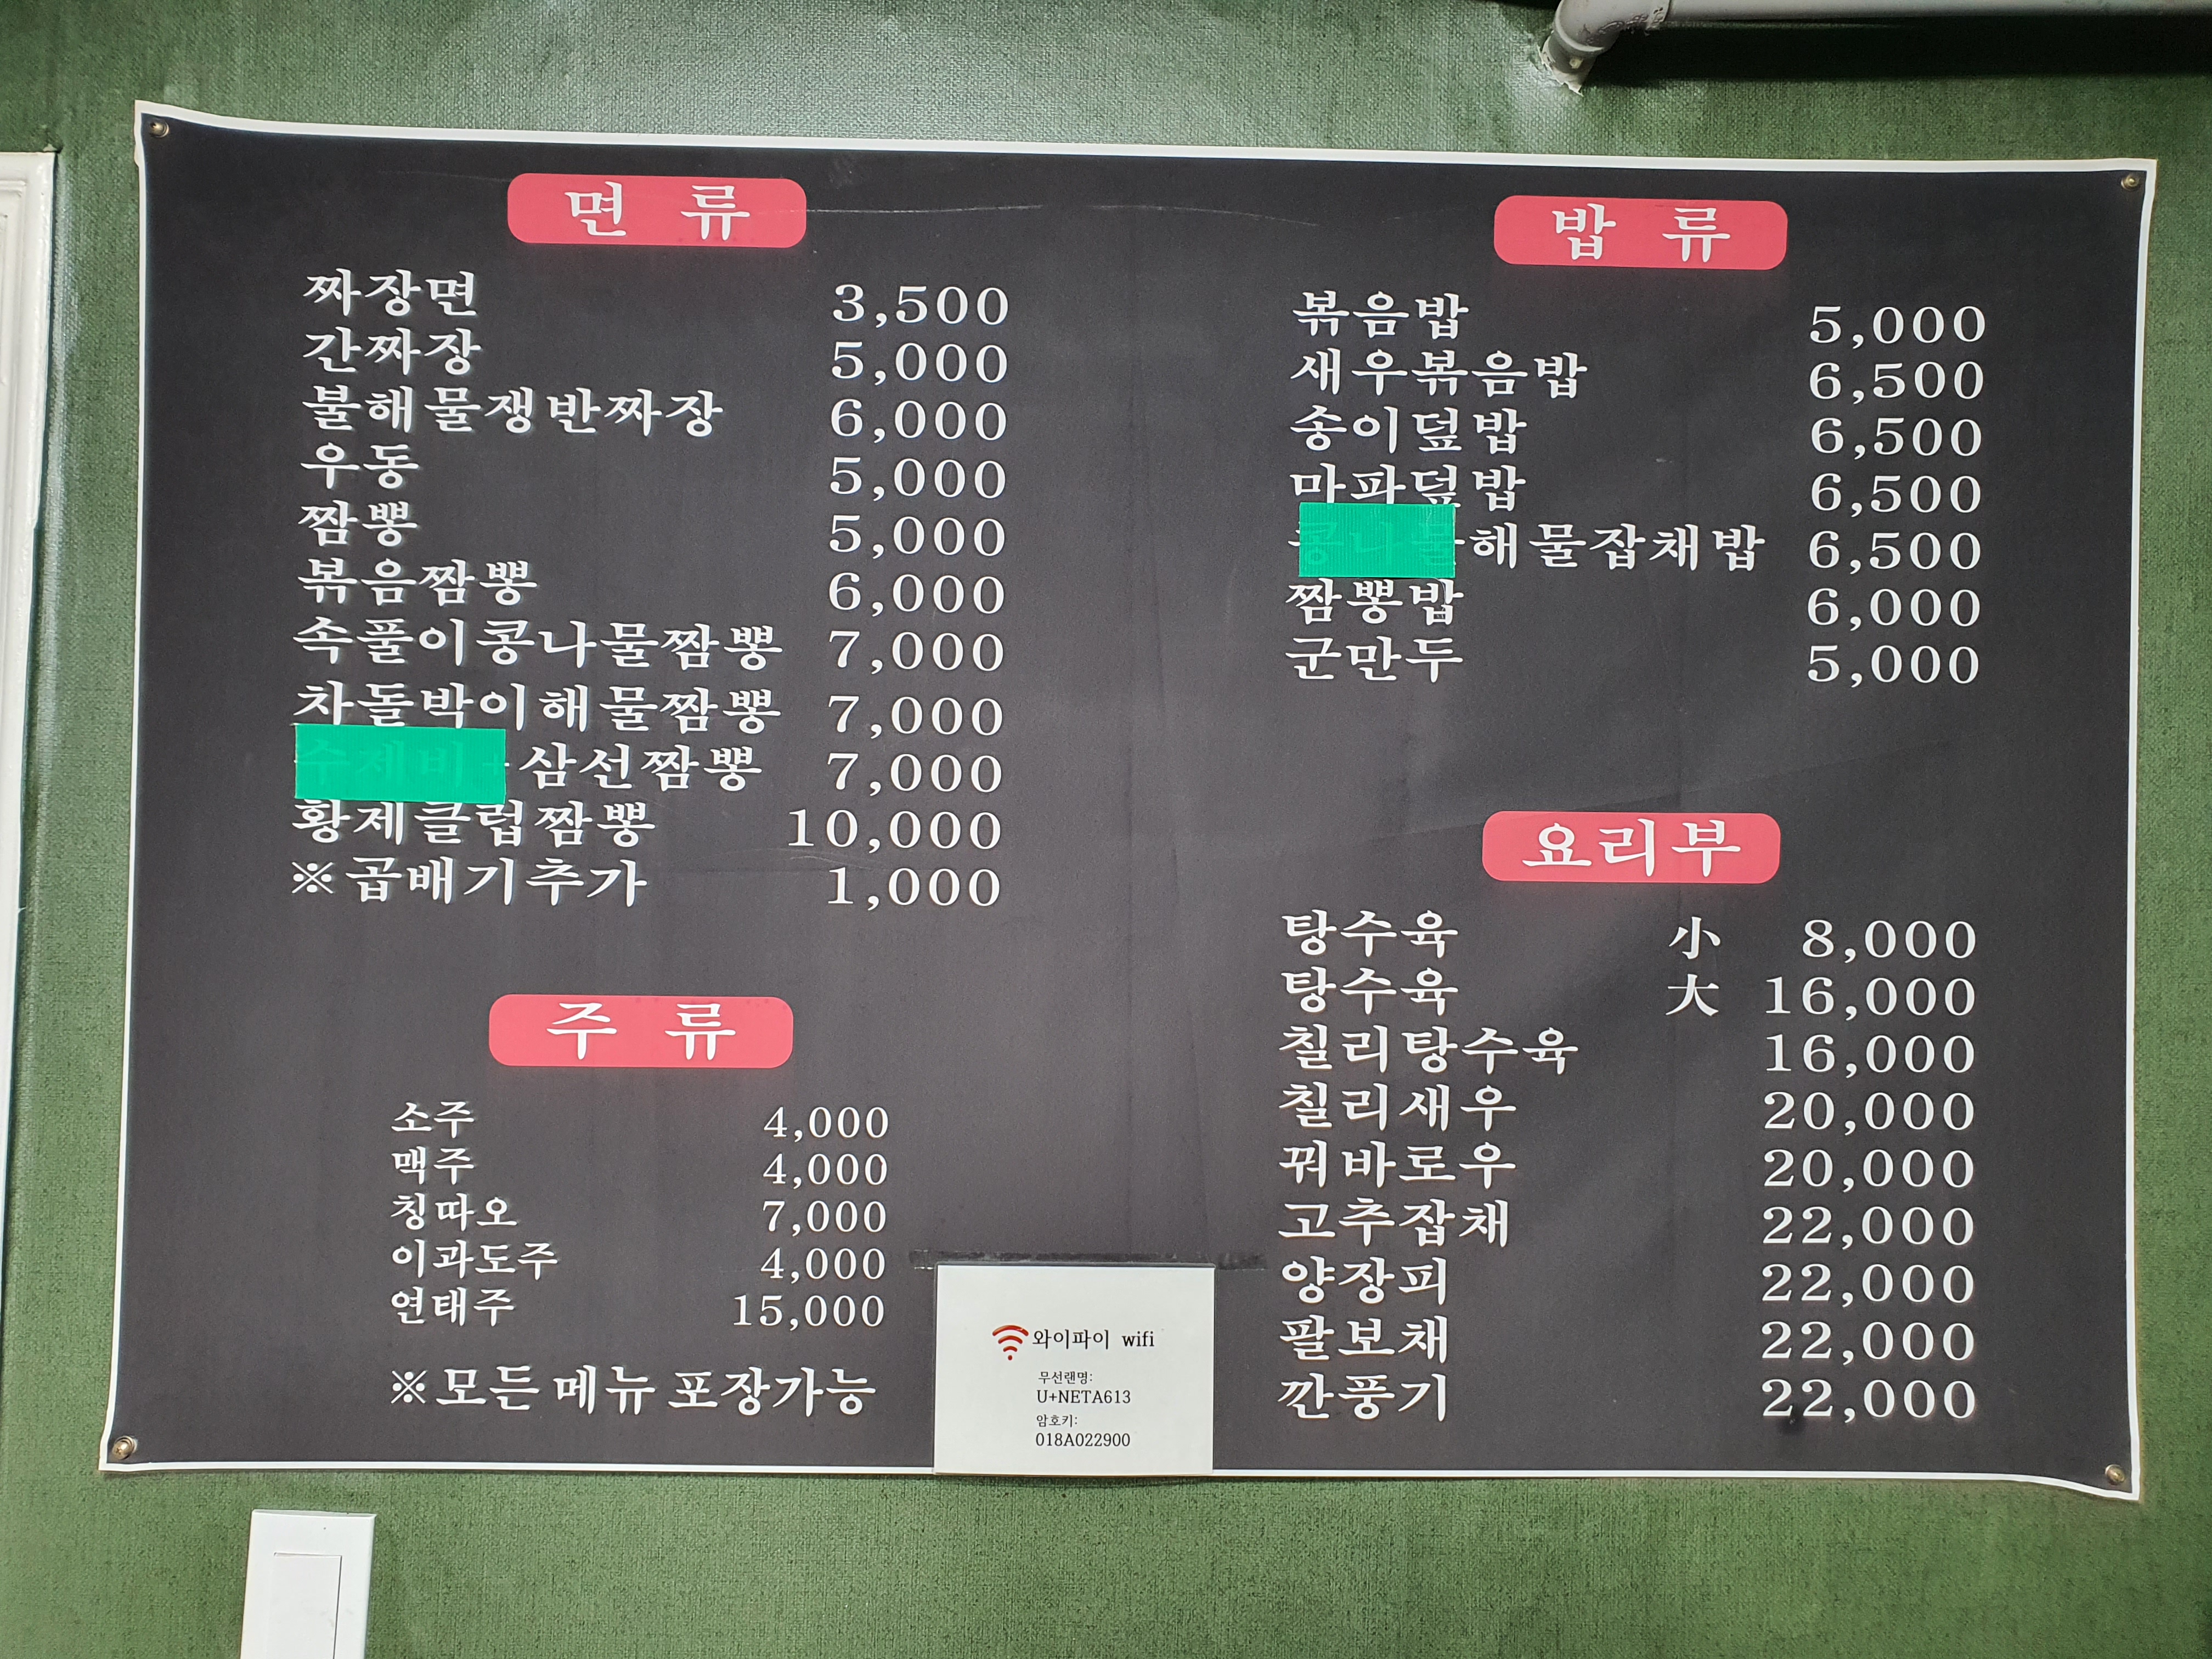 면 류
짜장면 3,500
간짜장 5,000
불해물쟁반짜장 6,000
우동 5,000
짬뽕 5,000
볶음짬뽕 6,000
속풀이콩나물짬뽕 7,000
차돌박이해물짬뽕 7,000
수제비+삼선짬뽕 7,000
황제클럽짬뽕 10,000
※곱배기추가 1,000
주 류
소주 4,000
맥주 4,000
칭따오 7,000
이과도주 4,000
연태주 15,000
※모든 메뉴 포장가능
밥 류
볶음밥 5,000
새우볶음밥 6,500
송이덮밥 6,500
마파덮밥 6,500
콩나물해물잡채밥 6,500
짬뽕밥 6,000
군만두 5,000
요리부
탕수육 小 8,000
탕수육 大 16,000
칠리탕수육 16,000
칠리새우 20,000
꿔바로우 20,000
고추잡채 22,000
양장피 22,000
팔보채 22,000
깐풍기 22,000
와이파이 wifi
무선랜명:
U+NETA613
암호키:
018A022900